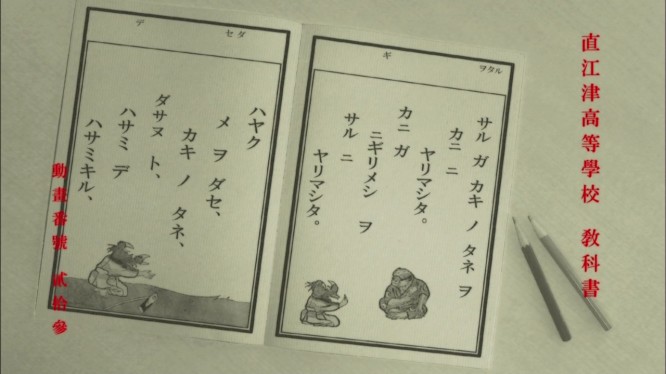 直江津高等學校 教科書
ヲタル
ギ
サル ガ カキ ノ タネ ヲ
カニ ニ
ヤリマシタ。
カニ ガ
ニギリメシ ヲ
サル ニ
ヤリマシタ。
セダ
デ
ハヤク
メ ヲ ダセ、
カキ ノ タネ、
ダサヌ ト、
ハサミ デ
ハサミキル、
動畫番號 貳拾參